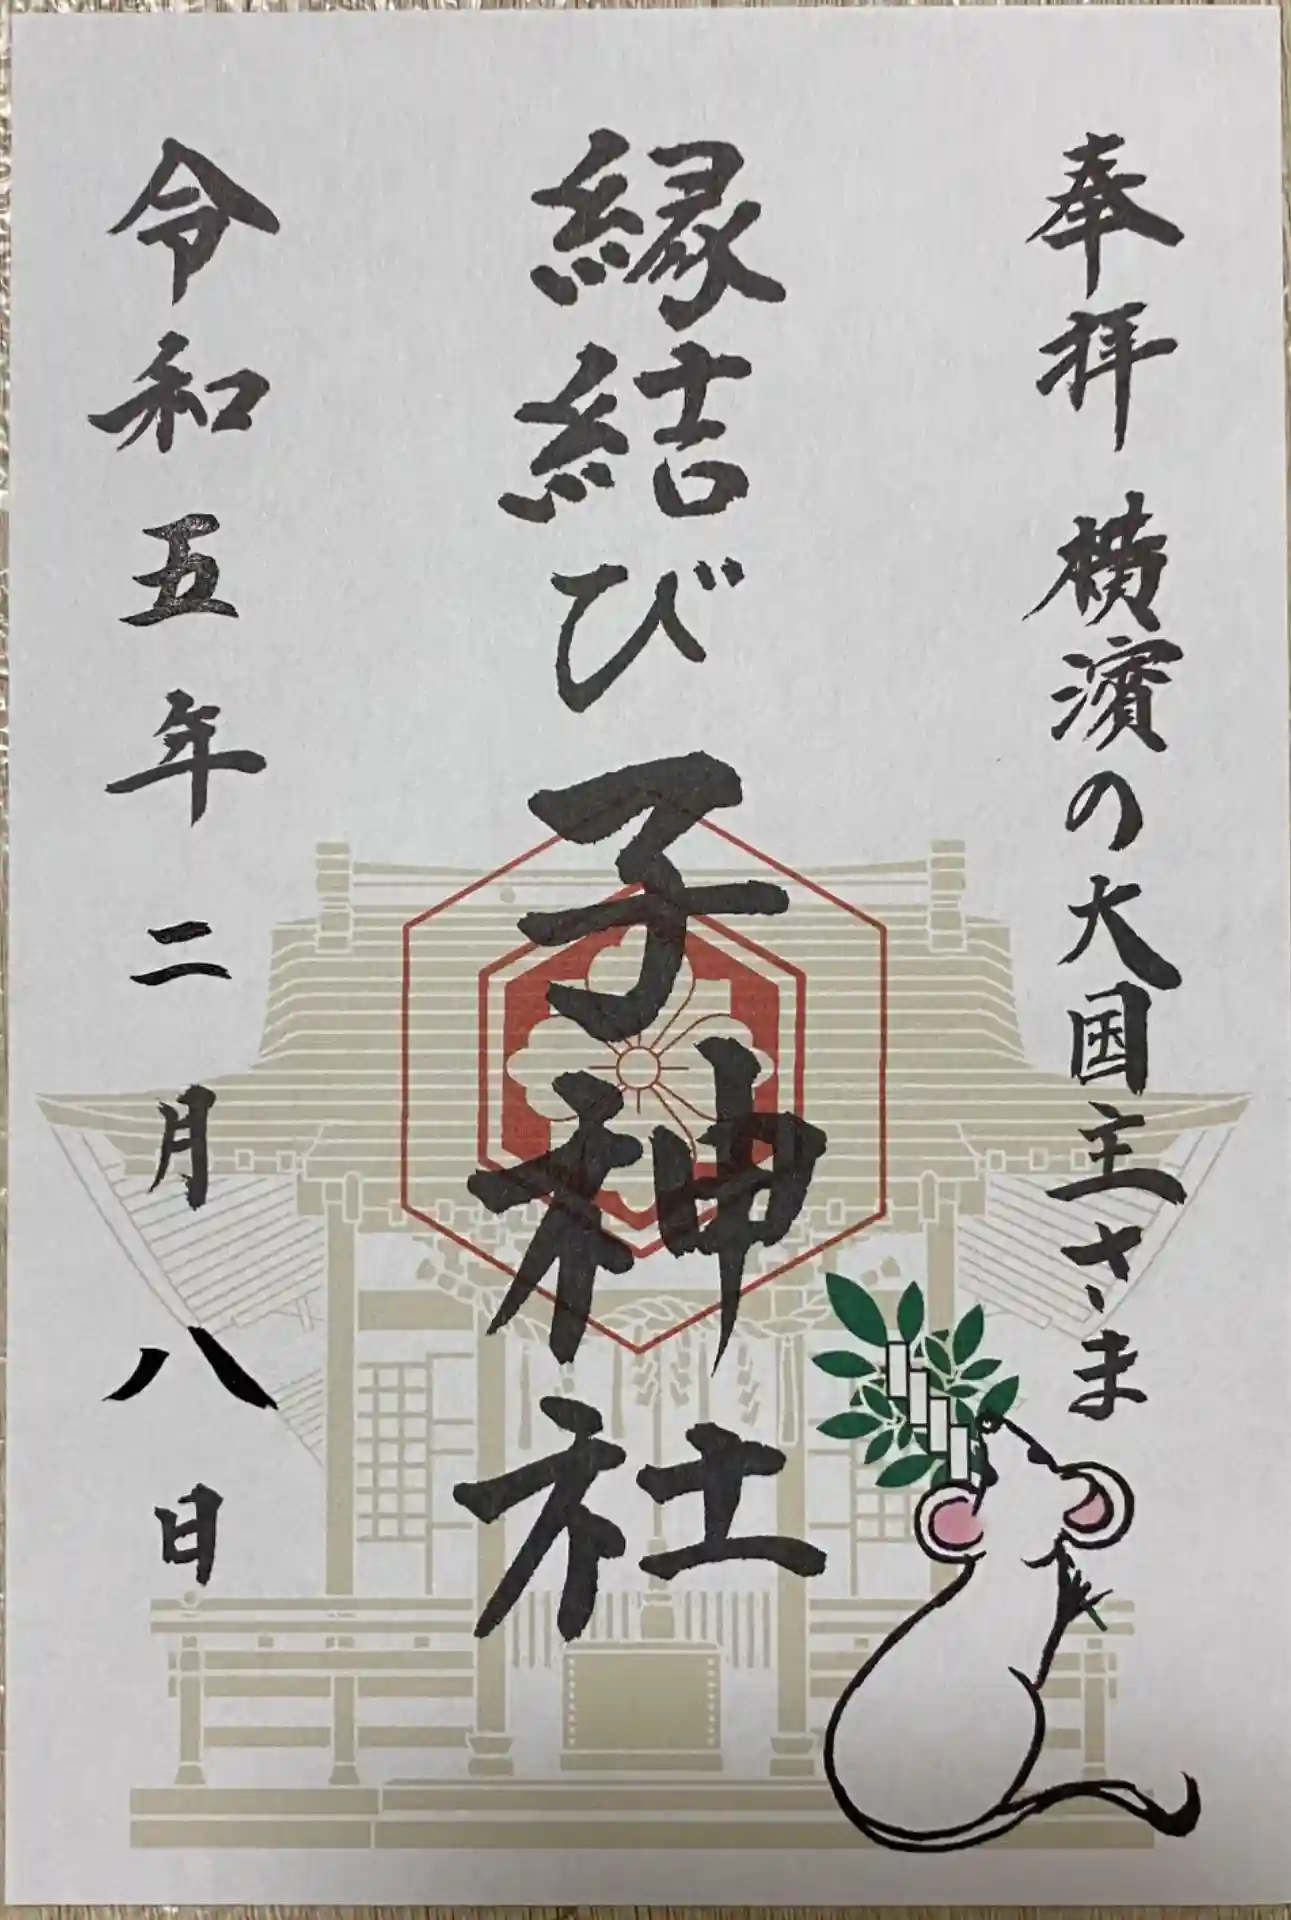 奉拝 横濱の大国主さま
縁結び 子神社
令和五年二月八日